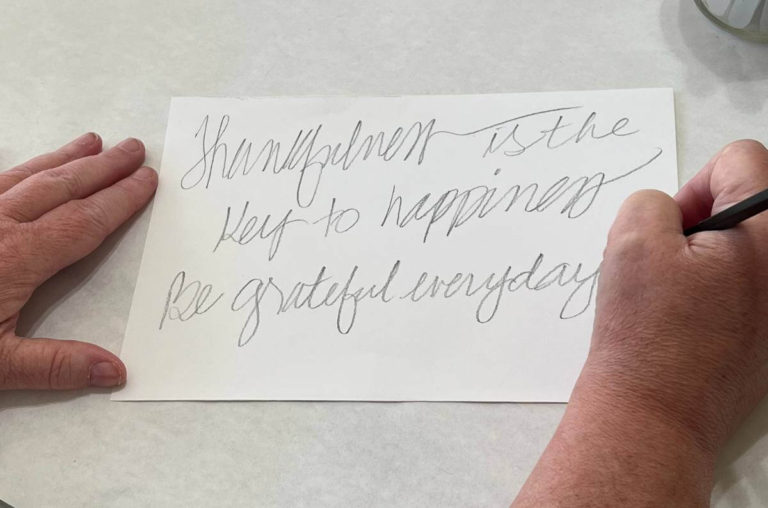 Thankfulness is the
Key to happiness
Be grateful everyday